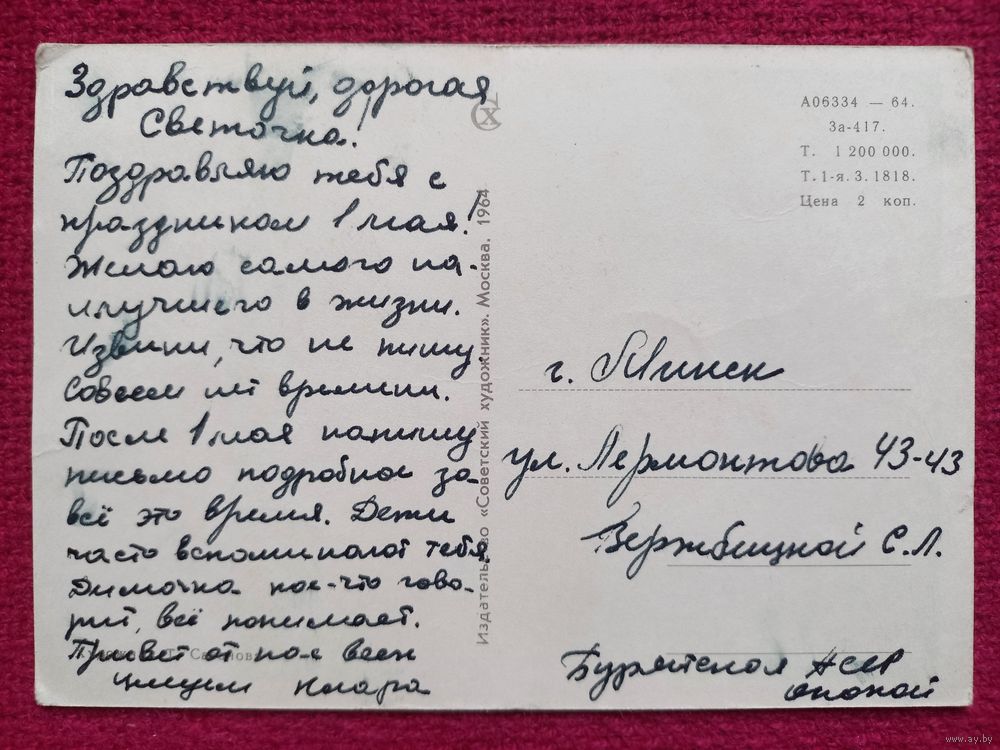 Здравствуй, дорогая
Светочка!
Поздравляю тебя с
праздником 1 мая!
Желаю самого на-
илучшего в жизни.
Извини, что не пишу.
Совсем нет времени.
После 1 мая напишу
письмо подробное за
всё это время. Дети
часто вспоминают тебя.
Димочка кое-что гово-
рит, всё понимает.
Привет от нас всем
целуем Клара
Издательство «Советский художник». Москва. 1964
СХ
А06334 — 64.
За-417.
Т. 1 200 000.
Т.1-я. З. 1818.
Цена 2 коп.
г. Минск
ул. Лермонтова 43-43
Вержбицкой С.Л.
Бурятская АССР
www.ay.by